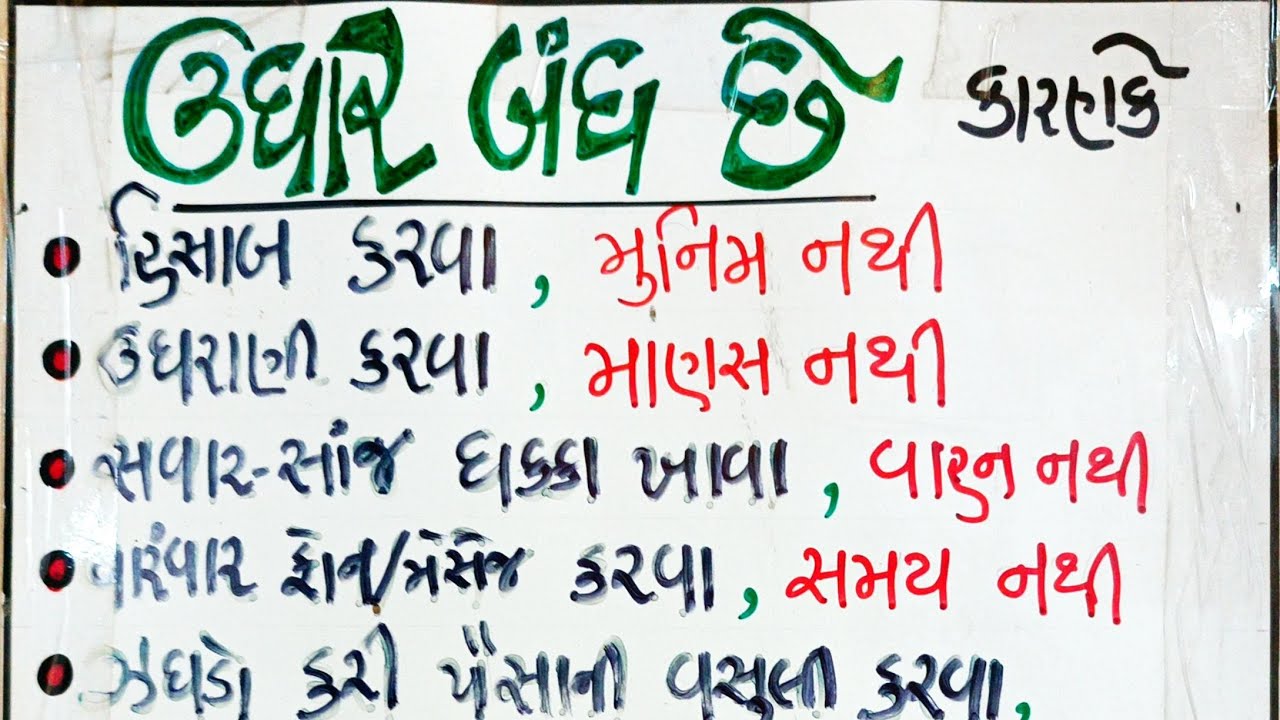 ઉધાર બંધ છે કારણકે
• હિસાબ કરવા, મુનિમ નથી
• ઉઘરાણી કરવા, માણસ નથી
• સવાર-સાંજ ધક્કા ખાવા, વાહન નથી
• વારંવાર ફોન/મેસેજ કરવા, સમય નથી
• ઝઘડો કરી પૈસાની વસુલી કરવા,